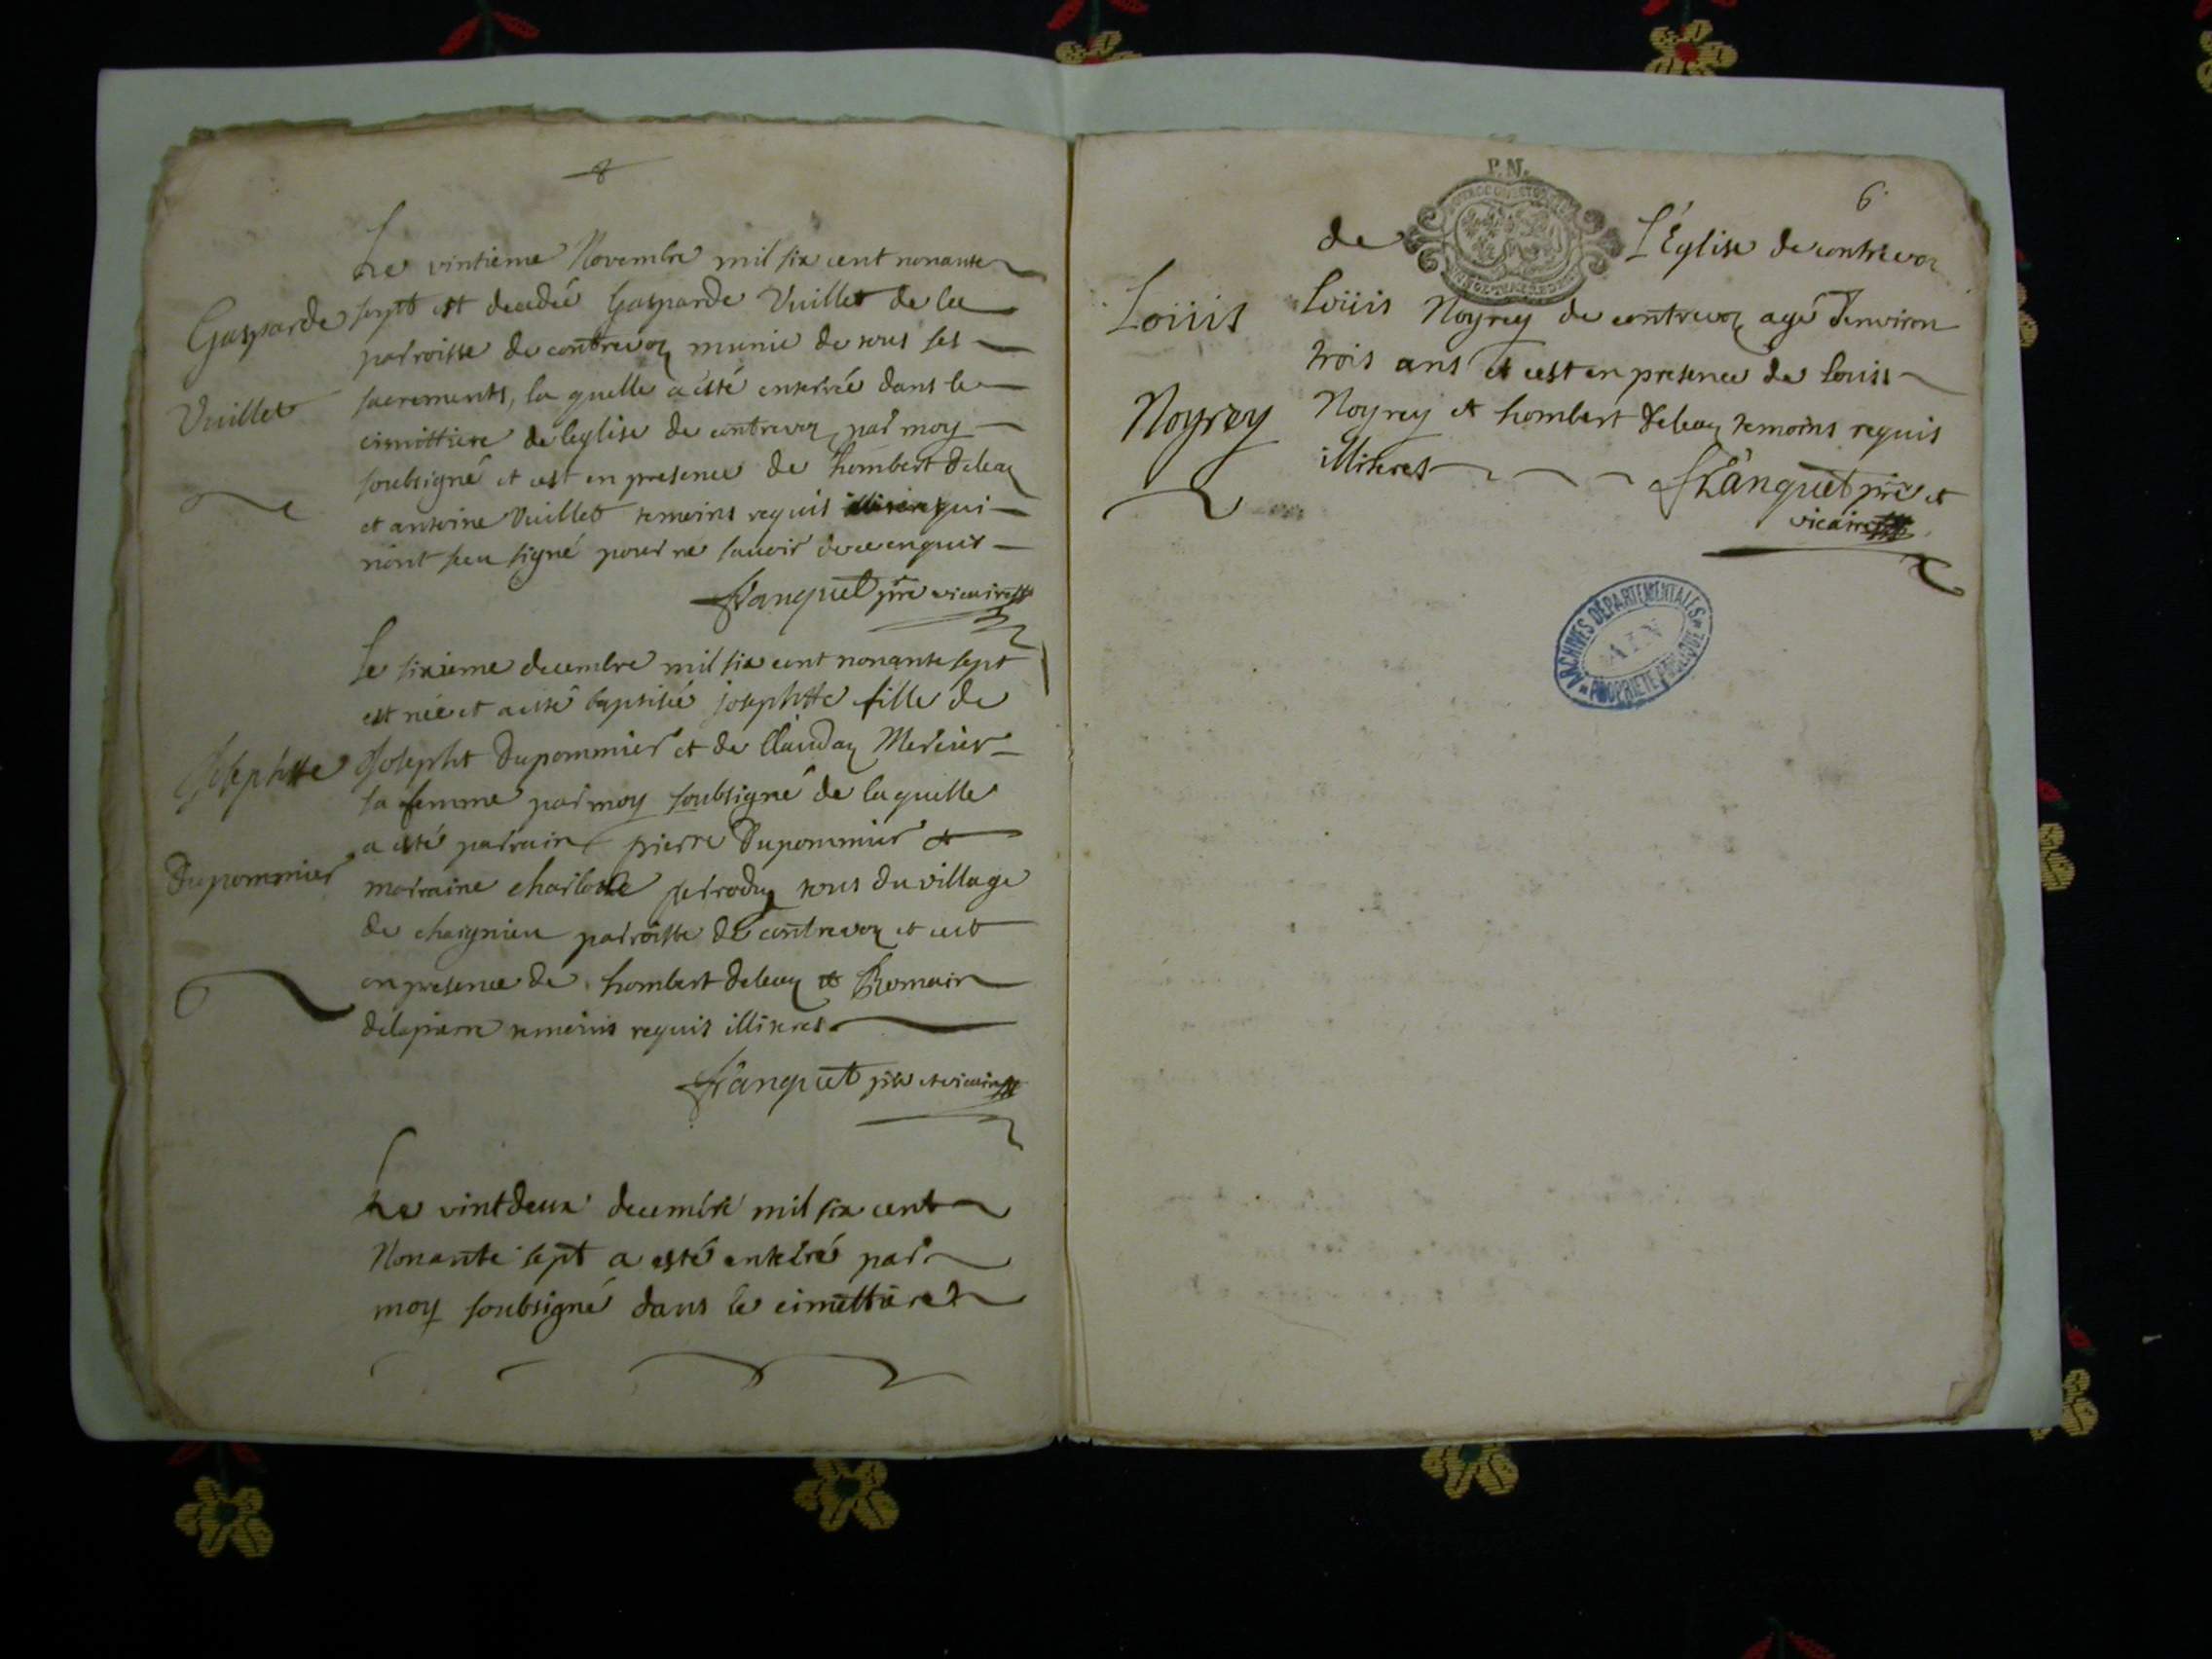 Le vintième Novembre mil six cent nonante
Gasparde
sept est decedée Gasparde Vuillet de la
parroisse de contrevoz munie de tous ses
Vuillet
sacrements, la quelle a esté enterrée dans le
cimittiere de leglise de contrevoz par moy
soubsigné et cest en presence de hombert deleaz
et antoine Vuillet temoins requis qui
n'ont sceu signé pour ne sauoir de ce enquis
franquet ptre vicaire
Le sixieme decembre mil six cent nonante sept
est née et a esté baptisée josephtte fille de
Josephtte
Josepht Dupommier et de Claudaz Mercier
sa femme par moy soubsigné de laquelle
a esté parrain pierre Dupommier et
Dupommier
marraine charlotte perrodaz tous du village
de chaignieu parroisse de contrevoz et cest
en presence de hombert deleaz et Romain
delapierre temoins requis illiteres
franquet ptre et vicaire
Le vintdeux decembre mil six cent
Nonante sept a esté enterré par
moy soubsigné dans le cimettiere
P.N.
6.
de L'Eglise de contrevoz
Loüis
Loüis Noyrey de contrevoz agé d'environ
trois ans et cest en presence de louis
Noyrey
Noyrey et hombert deleaz temoins requis
illiteres
franquet ptre et
vicaire
ARCHIVES DÉPARTEMENTALES
AIN
PROPRIÉTÉ PUBLIQUE